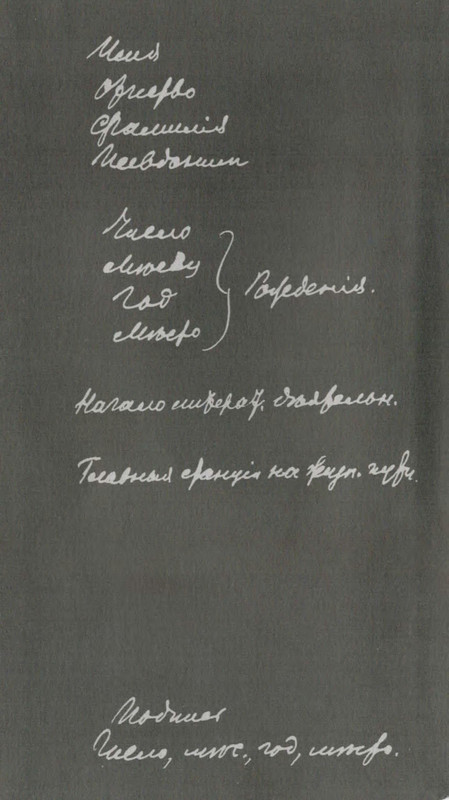 Имя
Отчество
Фамилія
Псевдоним
Число
Мѣсяц
Год
Мѣсто
Рожденія.
Начало литерат. дѣятельн.
Главныя станціи на жизн. пути.
Подпись
Число, мѣс., год, мѣсто.